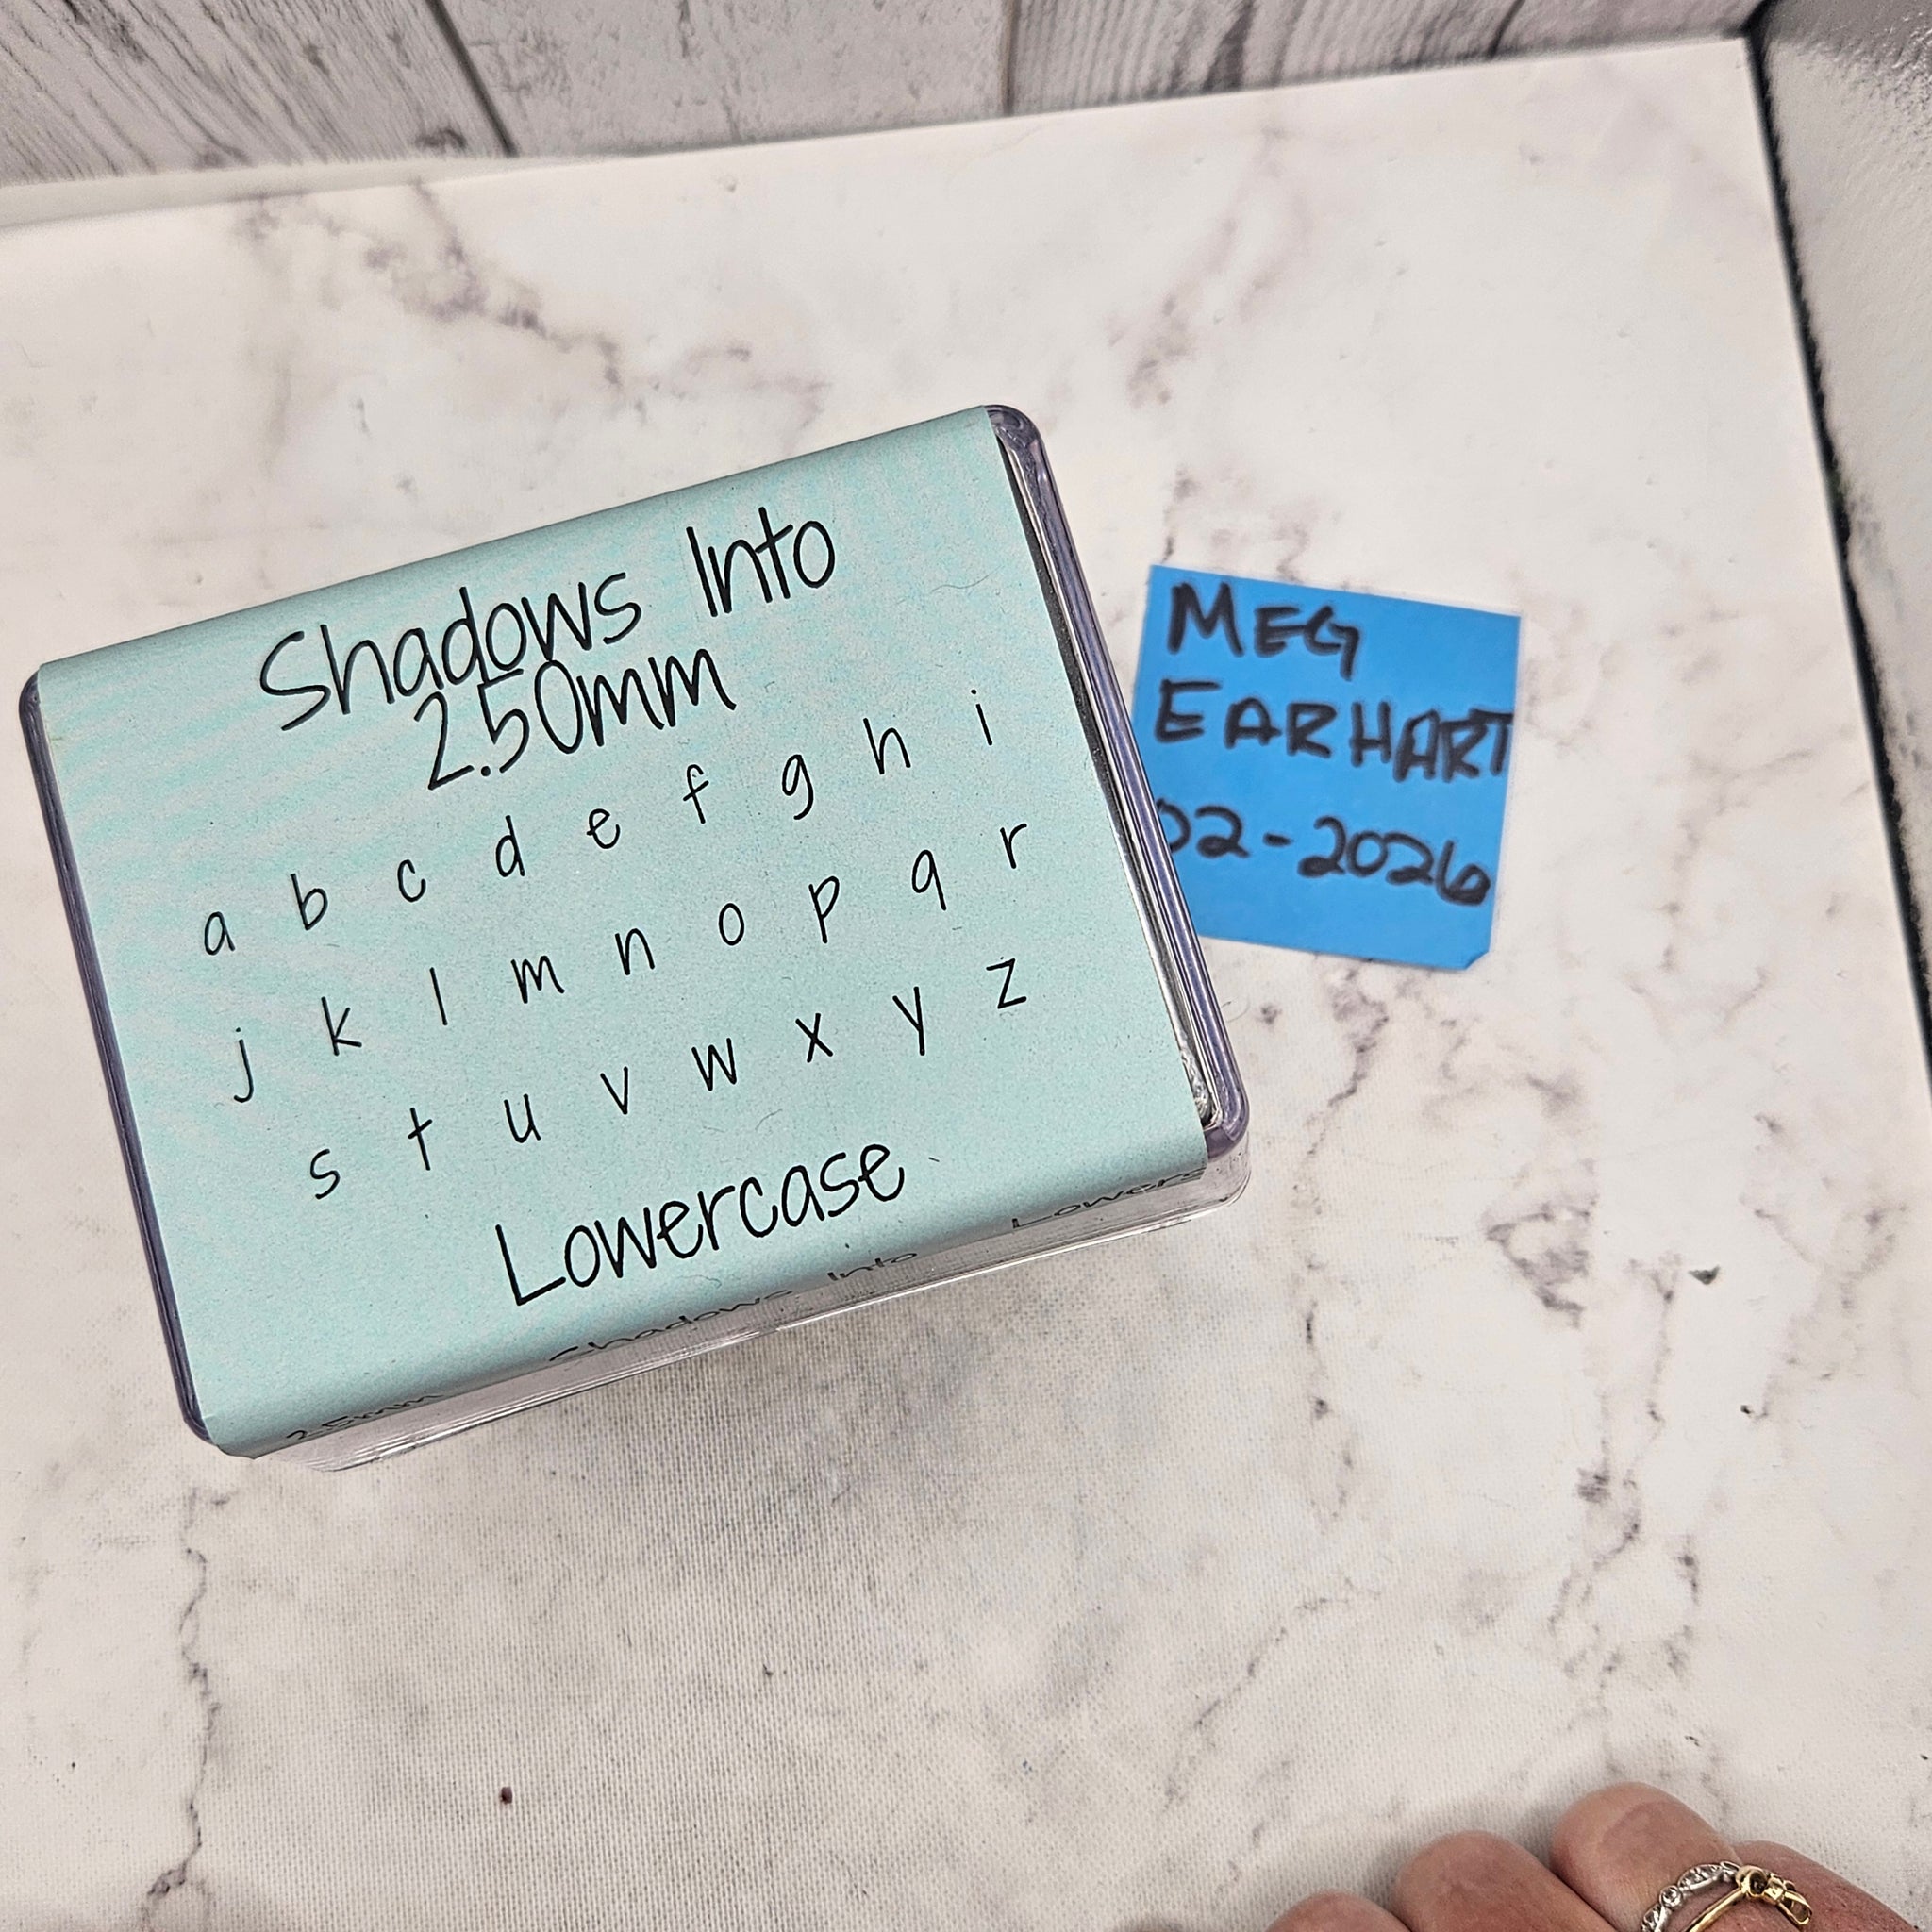 Shadows Into
2.50mm
a b c d e f g h i
j k l m n o p q r
s t u v w x y z
Lowercase
2.5mm Shadows Into
MEG
EARHART
02-2026